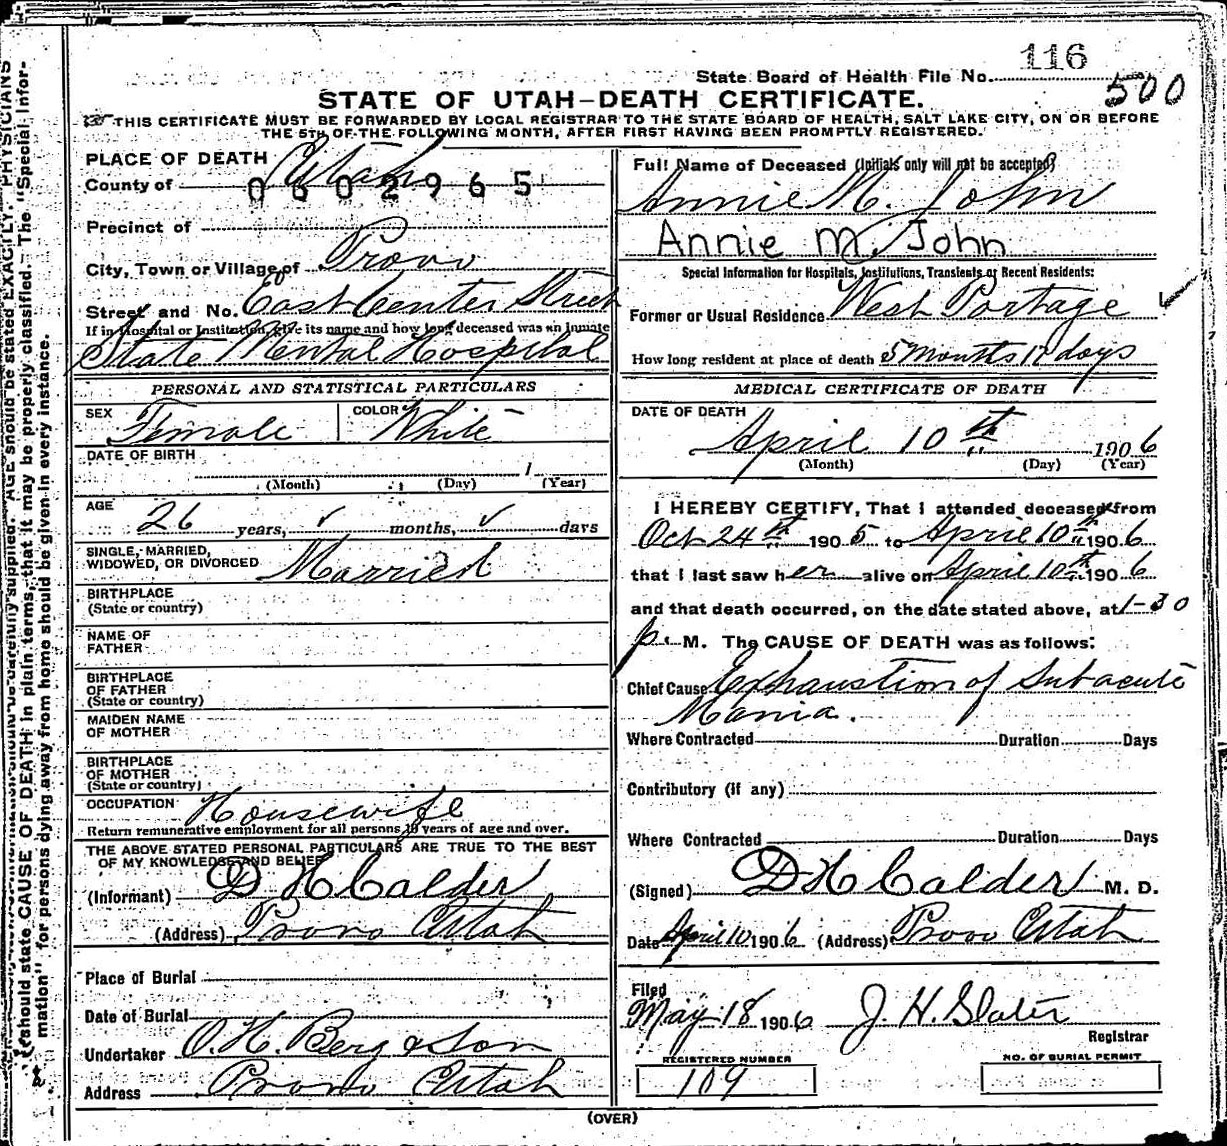 116
State Board of Health File No.
500
STATE OF UTAH—DEATH CERTIFICATE.
THIS CERTIFICATE MUST BE FORWARDED BY LOCAL REGISTRAR TO THE STATE BOARD OF HEALTH, SALT LAKE CITY, ON OR BEFORE
THE 5TH OF THE FOLLOWING MONTH, AFTER FIRST HAVING BEEN PROMPTLY REGISTERED.
PLACE OF DEATH
County of Utah
0602965
Precinct of
City, Town or Village of Provo
Street and No. East Center Street
If in Hospital or Institution, give its name and how long deceased was an inmate
State Mental Hospital
PERSONAL AND STATISTICAL PARTICULARS
SEX Female COLOR White
DATE OF BIRTH 1
(Month) (Day) (Year)
AGE 26 years, ✓ months, ✓ days
SINGLE, MARRIED,
WIDOWED, OR DIVORCED Married
BIRTHPLACE
(State or country)
NAME OF
FATHER
BIRTHPLACE
OF FATHER
(State or country)
MAIDEN NAME
OF MOTHER
BIRTHPLACE
OF MOTHER
(State or country)
OCCUPATION Housewife
Return remunerative employment for all persons 10 years of age and over.
THE ABOVE STATED PERSONAL PARTICULARS ARE TRUE TO THE BEST
OF MY KNOWLEDGE AND BELIEF
(Informant) D H Calder
(Address) Provo Utah
Place of Burial
Date of Burial
Undertaker O. H. Berg & Son
Address Provo Utah
Full Name of Deceased (Initials only will not be accepted)
Annie M. John
Annie M. John
Special Information for Hospitals, Institutions, Transients or Recent Residents:
Former or Usual Residence West Portage ✓
How long resident at place of death 5 Months 17 days
MEDICAL CERTIFICATE OF DEATH
DATE OF DEATH
April 10th 1906
(Month) (Day) (Year)
I HEREBY CERTIFY, That I attended deceased from
Oct 24th 1905 to April 10th 1906
that I last saw her alive on April 10th 1906
and that death occurred, on the date stated above, at 1-30
p. M. The CAUSE OF DEATH was as follows:
Chief Cause Exhaustion of Subacute
Mania.
Where Contracted Duration Days
Contributory (if any)
Where Contracted Duration Days
(Signed) D H Calder M. D.
Date April 10 1906 (Address) Provo Utah
Filed
May 18 1906 J. H. Slater
Registrar
REGISTERED NUMBER
109
NO. OF BURIAL PERMIT
(OVER)
carefully supplied. AGE should be stated EXACTLY. PHYSICIANS
should state CAUSE OF DEATH in plain terms, that it may be properly classified. The "Special Infor-
mation" for persons dying away from home should be given in every instance.